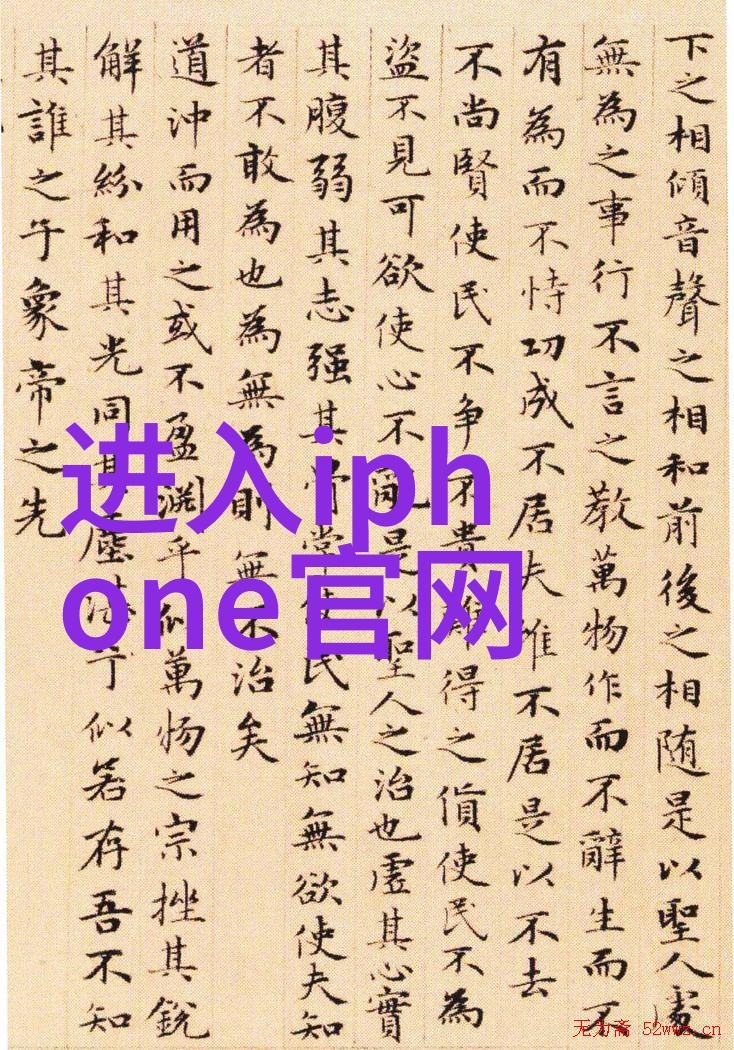 下之相傾音聲之相和前後之相随是以聖人處
無為之事行不言之教萬物作而不辭生而不
有為而不恃功成不居夫惟不居是以不去
不尚賢使民不争不貴難得之貨使民不為
盜不見可欲使心不亂是以聖人之治也虛其心實
其腹弱其志强其骨常使民無知無欲使夫知
者不敢為也為無為則無不治矣
道沖而用之或不盈淵乎似萬物之宗挫其銳
解其紛和其光同其塵湛兮似若存吾不知
其誰之子象帝之先
进入iph
one官网
无为斋 52wwz.cn